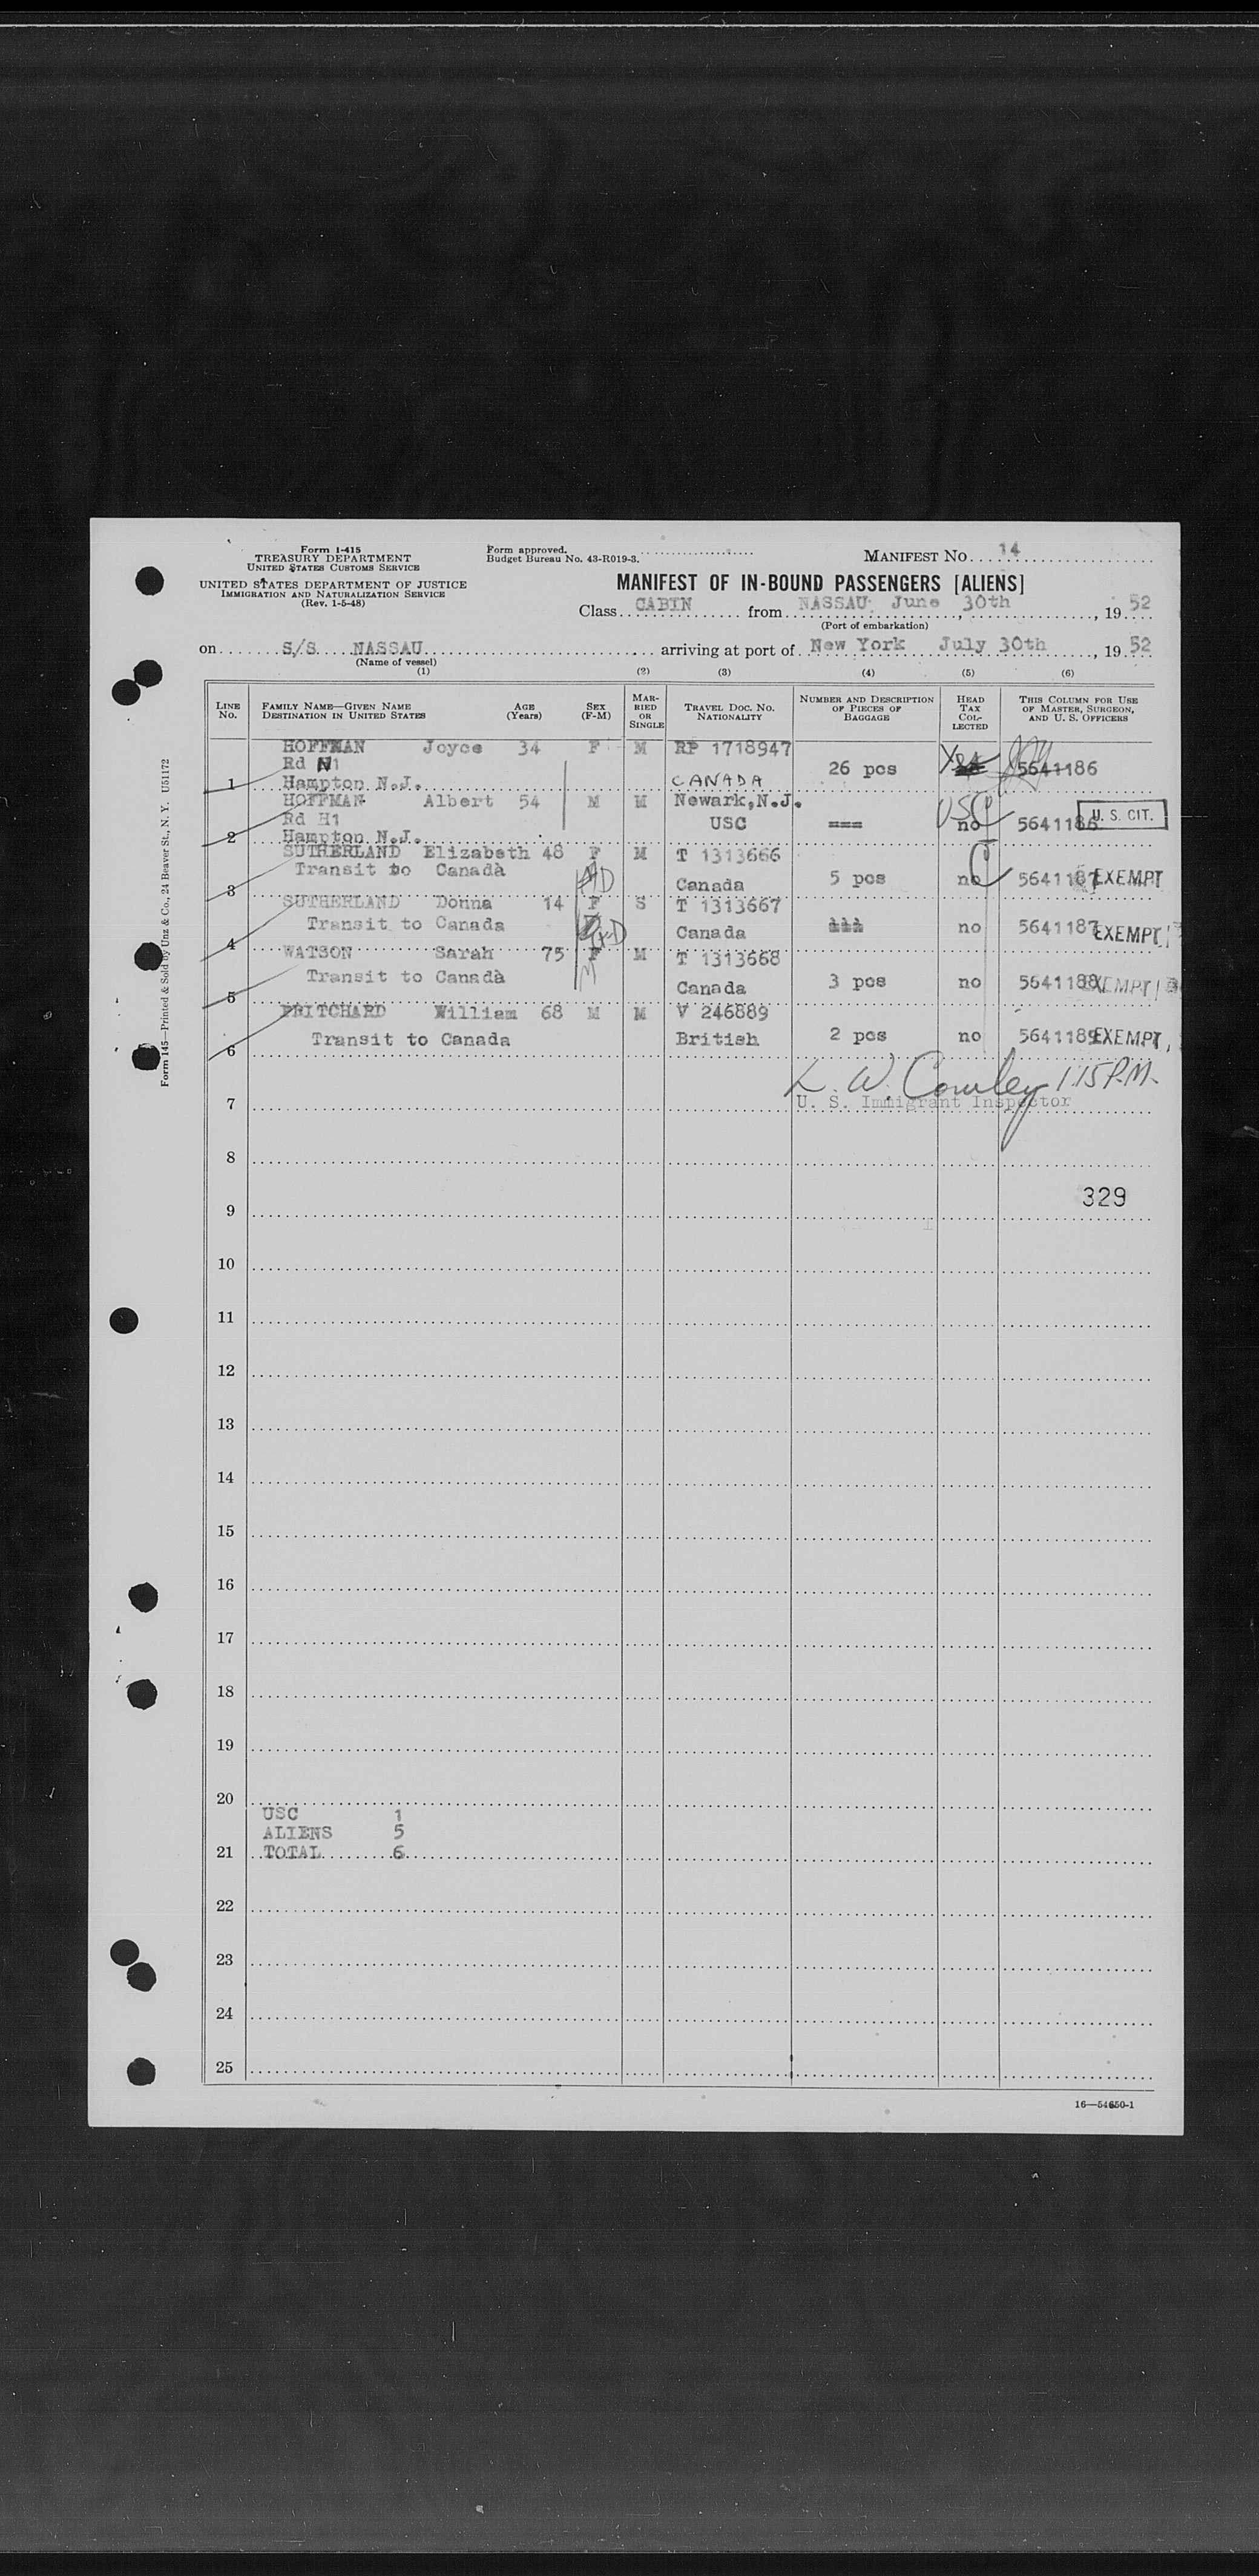 Form I-415
TREASURY DEPARTMENT
UNITED STATES CUSTOMS SERVICE
UNITED STATES DEPARTMENT OF JUSTICE
IMMIGRATION AND NATURALIZATION SERVICE
(Rev. 1-5-48)
Form approved.
Budget Bureau No. 43-R019-3.
MANIFEST NO. 14
MANIFEST OF IN-BOUND PASSENGERS [ALIENS]
Class CABIN from NASSAU June 30th, 1952
(Port of embarkation)
on S/S NASSAU arriving at port of New York July 30th, 1952
(Name of vessel)
(1) (2) (3) (4) (5) (6)
LINE NO. FAMILY NAME—GIVEN NAME DESTINATION IN UNITED STATES AGE (Years) SEX (F-M) MARRIED OR SINGLE TRAVEL DOC. NO. NATIONALITY NUMBER AND DESCRIPTION OF PIECES OF BAGGAGE HEAD TAX COLLECTED THIS COLUMN FOR USE OF MASTER, SURGEON, AND U. S. OFFICERS
HOFFMAN Joyce 34 F M RP 1718947
Rd 1 26 pcs 5641186
1 Hampton N.J. CANADA
HOFFMAN Albert 54 M M Newark, N.J.
Rd H1 USC === USC no 5641186 U. S. CIT.
2 Hampton N.J.
SUTHERLAND Elizabeth 48 F M T 1313666
Transit to Canada
3 Canada 5 pcs no 5641187 EXEMPT
SUTHERLAND Donna 14 F S T 1313667
Transit to Canada
4 Canada no 5641187 EXEMPT
WATSON Sarah 75 F M T 1313668
Transit to Canada
5 Canada 3 pcs no 5641188 EXEMPT
PRITCHARD William 68 M M V 246889
Transit to Canada
6 British 2 pcs no 5641189 EXEMPT
L. W. Conley 1:15 P.M.
7 U. S. Immigrant Inspector
8
329
9
10
11
12
13
14
15
16
17
18
19
20
USC 1
ALIENS 5
21 TOTAL 6
22
23
24
25
16—54650-1
Form 145—Printed & Sold by Unz & Co., 24 Beaver St., N. Y. U51172